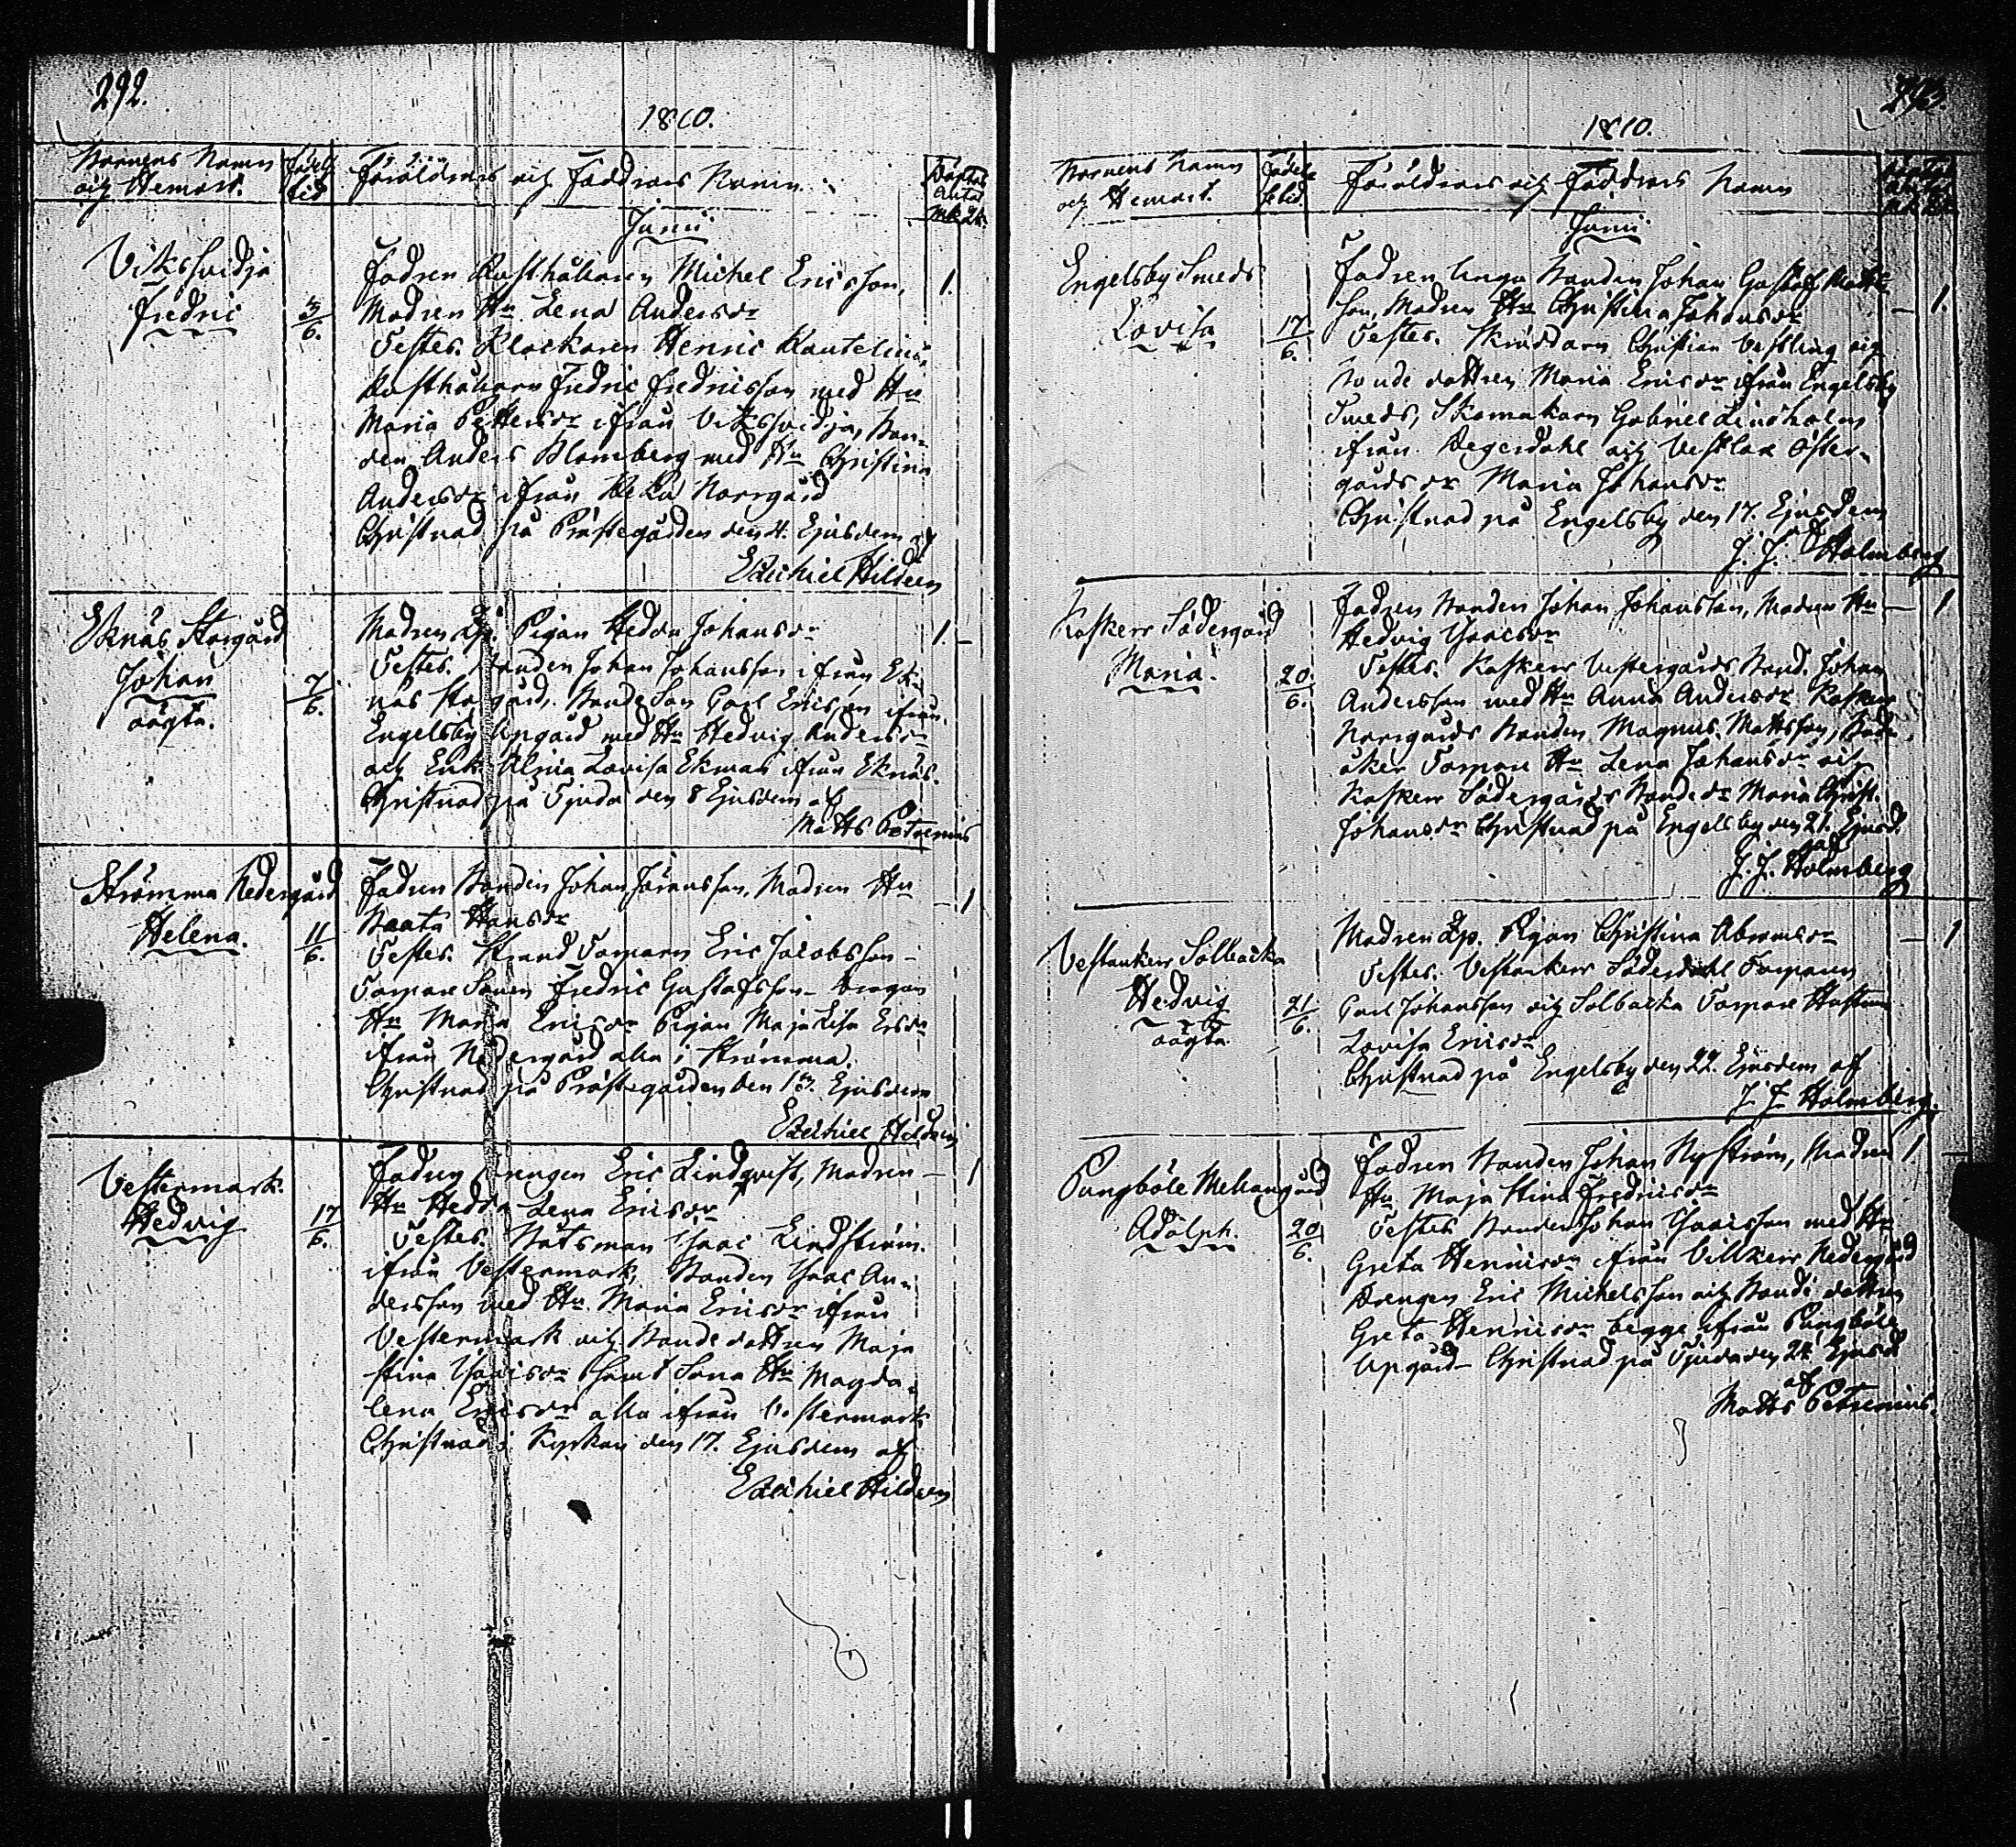 292.
1810.
Barnens Namn
och Hemort.
Födelse
tid
Föräldrars och Faddrars Namn
Döptas
Antal
Mk Qk
Junii
Viksvidja
Fredric
3/6.
Fadren Rusthållaren Michel Ericsson,
1.
Modren Hu Lena Andersdr
Testes. Klockaren Henric Kantelius,
Rusthållarn Fredric Fredricsson med Hu
Maria Pettersdr ifrån Viksvidja, Bon-
den Anders Blomberg med Hu Christina
Andersdr ifrån Norrgård
Christnad på Prästegården den 4. Ejusdem af
Ezechiel Hildeen
Eknäs Storgård
Johan
oägta.
7/6.
Modren Lp. Pigan Hedda Johansdr
1. -
Testes. Bonden Johan Johansson ifrån Ek-
näs Storgård, Bonde Son Carl Ericsson ifrån
Engelsby Upgård med Hu Hedvig Andersdr
och Enk. Ulrica Lovisa Ekman ifrån Eknäs.
Christnad på Tjuda den 8 Ejusdem af
Matts Petrenius
Strömma Nedergård
Helena.
11/6.
Fadren Bonden Johan Göransson, Modren Hu
- 1
Beata Hansdr
Testes. Strand Torparn Eric Jacobsson -
Torpare Sonen Fredric Gustafsson - Drengen
Hu Maria Ericsdr Pigan Maja Lisa Ersdr
ifrån Nedergård alla i Strömma.
Christnad på Prästegården den 13. Ejusdem
Ezechiel Hildeen
Vestermark.
Hedvig
17/6.
Fadren Drengen Eric Lindqvist, Modren
- 1
Hu Hedda Lena Ericsdr
Testes. Båtsman Isaac Lindström.
ifrån Vestermark, Bonden Isaac An-
dersson med Hu Maria Ericsdr ifrån
Vestermark och Bonde dottren Maja
Stina Isacsdr samt Sona Hu Magda-
lena Ericsdr alla ifrån Vestermark
Christnad i Kyrkan den 17. Ejusdem af
Ezechiel Hildeen
293
1810.
Barnens Namn
och Hemort.
Födelse
tid.
Föräldrars och Faddrars Namn
Junii
Engelsby Smeds
Lovisa
17/6.
Fadren Unga Bonden Johan Gustaf Matts-
son, Modren Hu Christina Johansdr
- 1.
Testes. Skräddarn Christian Vestling och
Bonde dottren Maria Ericsdr ifrån Engelsby
Smeds, Skomakarn Gabriel Lindholm
ifrån Degerdahl och Vestlax Öster-
gårds dr Maria Johansdr
Christnad på Engelsby den 17. Ejusdem
af J. J. Holmberg
Koskerr Södergård
Maria.
20/6.
Fadren Bonden Johan Johansson, Modren Hu
- 1
Hedvig Isacsdr
Testes. Koskerr Vestergårds Bond. Johan
Andersson med Hu Anna Andersdr Koskerr
Norrgårds Bonden Magnus Mattsson,
åker Torpare Hu Lena Johansdr och
Koskerr Södergårds Bonde dr Maria Christ.
Johansdr Christnad på Engelsby den 21. Ejusd.
af
J. J. Holmberg
Vestankerr Solbacka
Hedvig
oägta.
21/6.
Modren Lp. Pigan Christina Abramsdr
- 1
Testes. Vestankerr Söderdahl Torparen
Carl Johansson och Solbacka Torpare Hustrun
Lovisa Ericsdr
Christnad på Engelsby den 22. Ejusdem af
J. J. Holmberg.
Pungböle Mellangård
Adolph.
20/6.
Fadren Bonden Johan Nyström, Modren
1 -
Hu Maja Stina Fredricsdr
Testes Bonden Johan Isacsson med Hu
Greta Henricsdr ifrån Villkerr Nedergård
Drengen Eric Michelsson och Bonde dottren
Greta Henricsdr begge ifrån Pungböle
Upgård - Christnad på Tjuda den 24 Ejusd
af
Matts Petrenius.